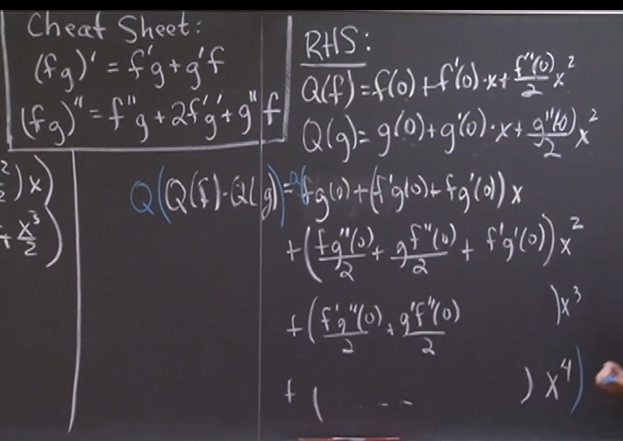 Cheat Sheet:
(fg)' = f'g + g'f
(fg)'' = f''g + 2f'g' + g''f
RHS:
Q(f) = f(0) + f'(0)·x + f''(0)/2 x²
Q(g) = g(0) + g'(0)·x + g''(0)/2 x²
Q(Q(f)·Q(g)) = Q(fg(0) + (f'g(0) + fg'(0)) x
+ (fg''(0)/2 + gf''(0)/2 + f'g'(0)) x²
+ (f'g''(0)/2 + g'f''(0)/2 ) x³
+ ( ... ) x⁴)
) x)
+ x³/2 )